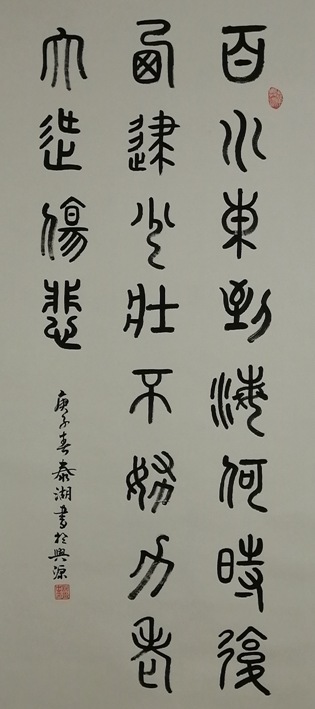 百川東到海何時復
西歸少壯不努力老
大徒傷悲
庚子春泰湖書於興源